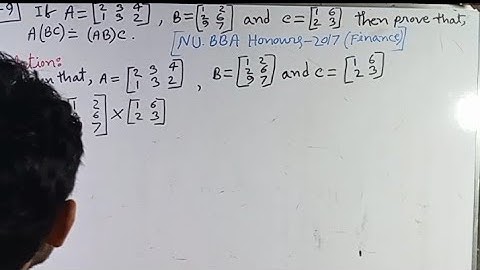 -9] If A = [2 3 4
1 3 2], B = [1 2
2 6
5 7] and C = [1 6
2 3] then prove that,
A(BC) = (AB)C. [NU. BBA Honours-2017 (Finance)]
tion:
n that, A = [2 3 4
1 3 2], B = [1 2
2 6
9 7] and C = [1 6
2 3]
1 2
6
7] × [1 6
2 3]